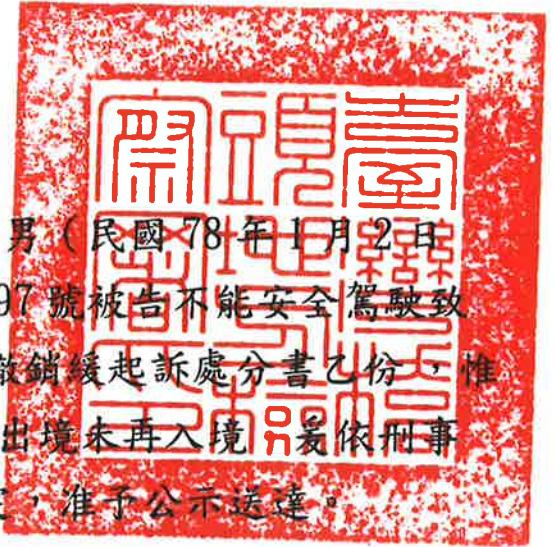 臺灣橋
頭地方檢
察署印
男（民國 78 年 1 月 2 日
97 號被告不能安全駕駛致
撤銷緩起訴處分書乙份，惟
出境未再入境，爰依刑事
定，准予公示送達。